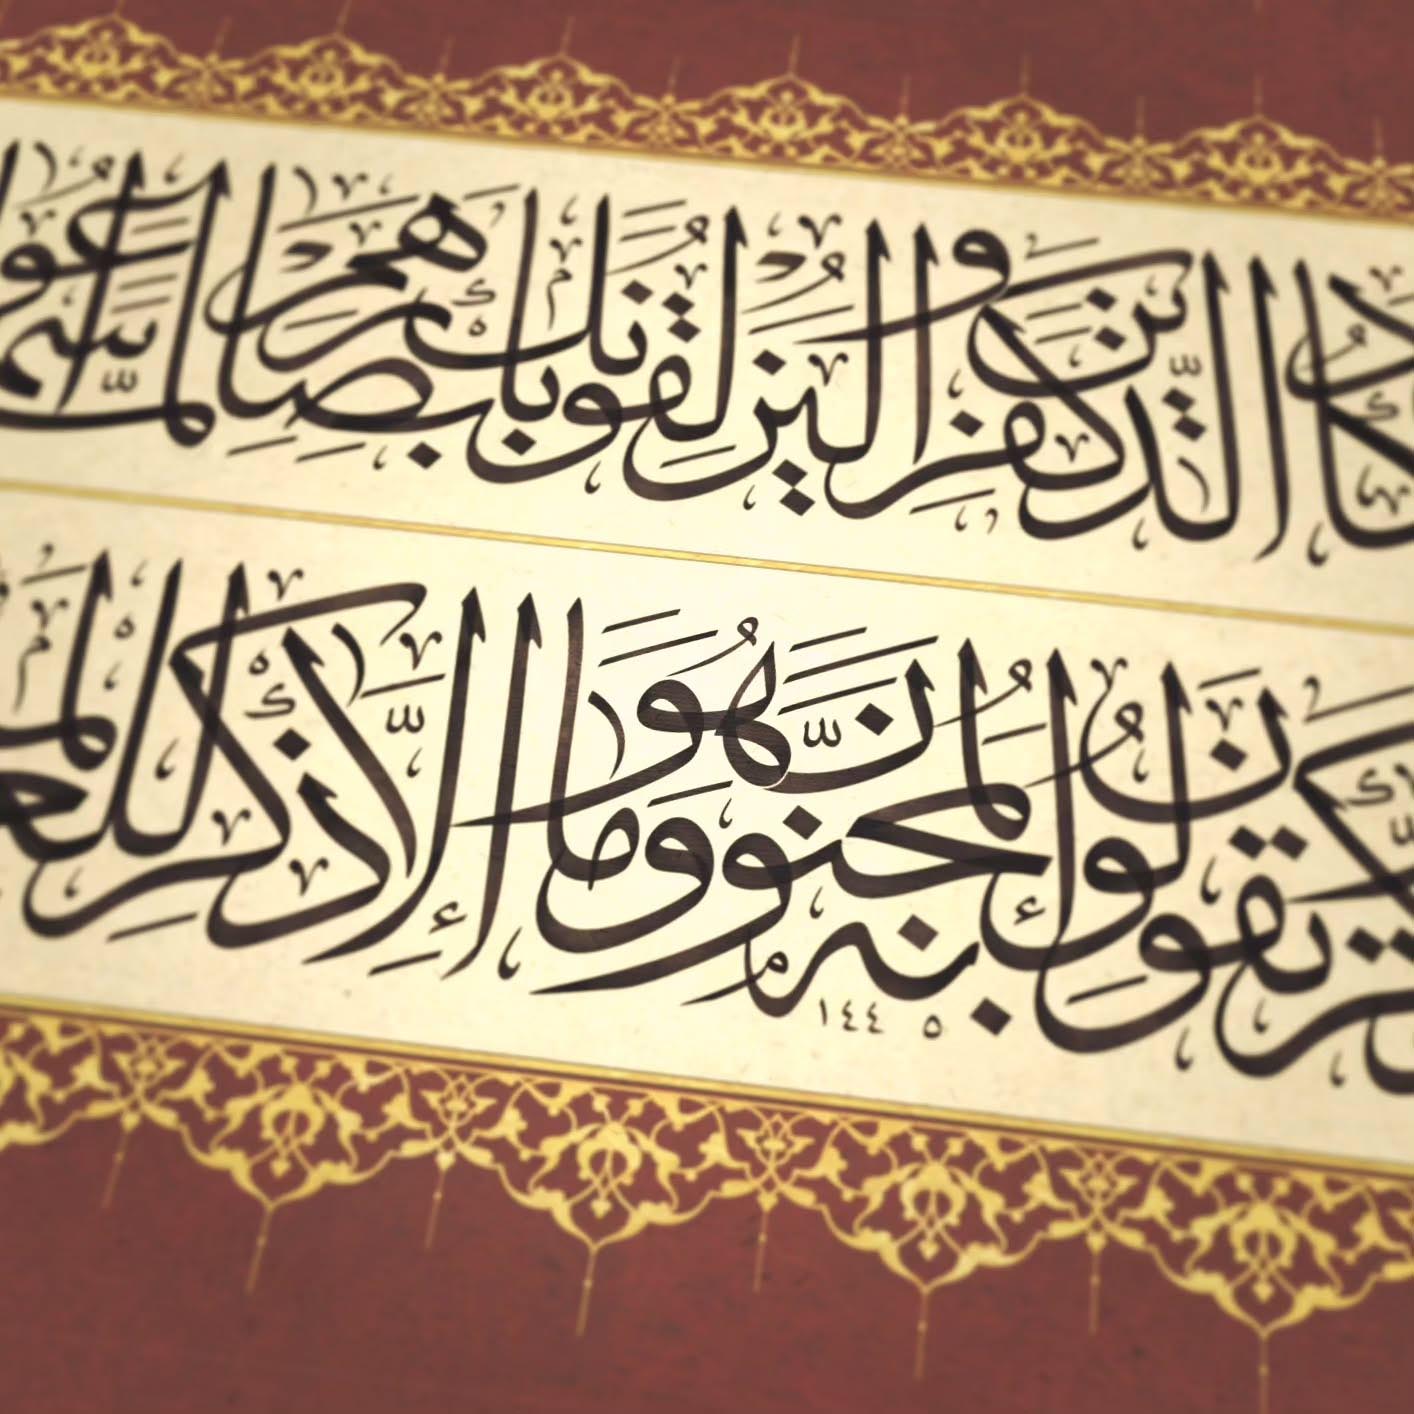 يكاد الذين كفروا ليزلقونك بأبصارهم لما سمعوا
الذكر ويقولون إنه لمجنون وما هو إلا ذكر للعالمين
١٤٤٥